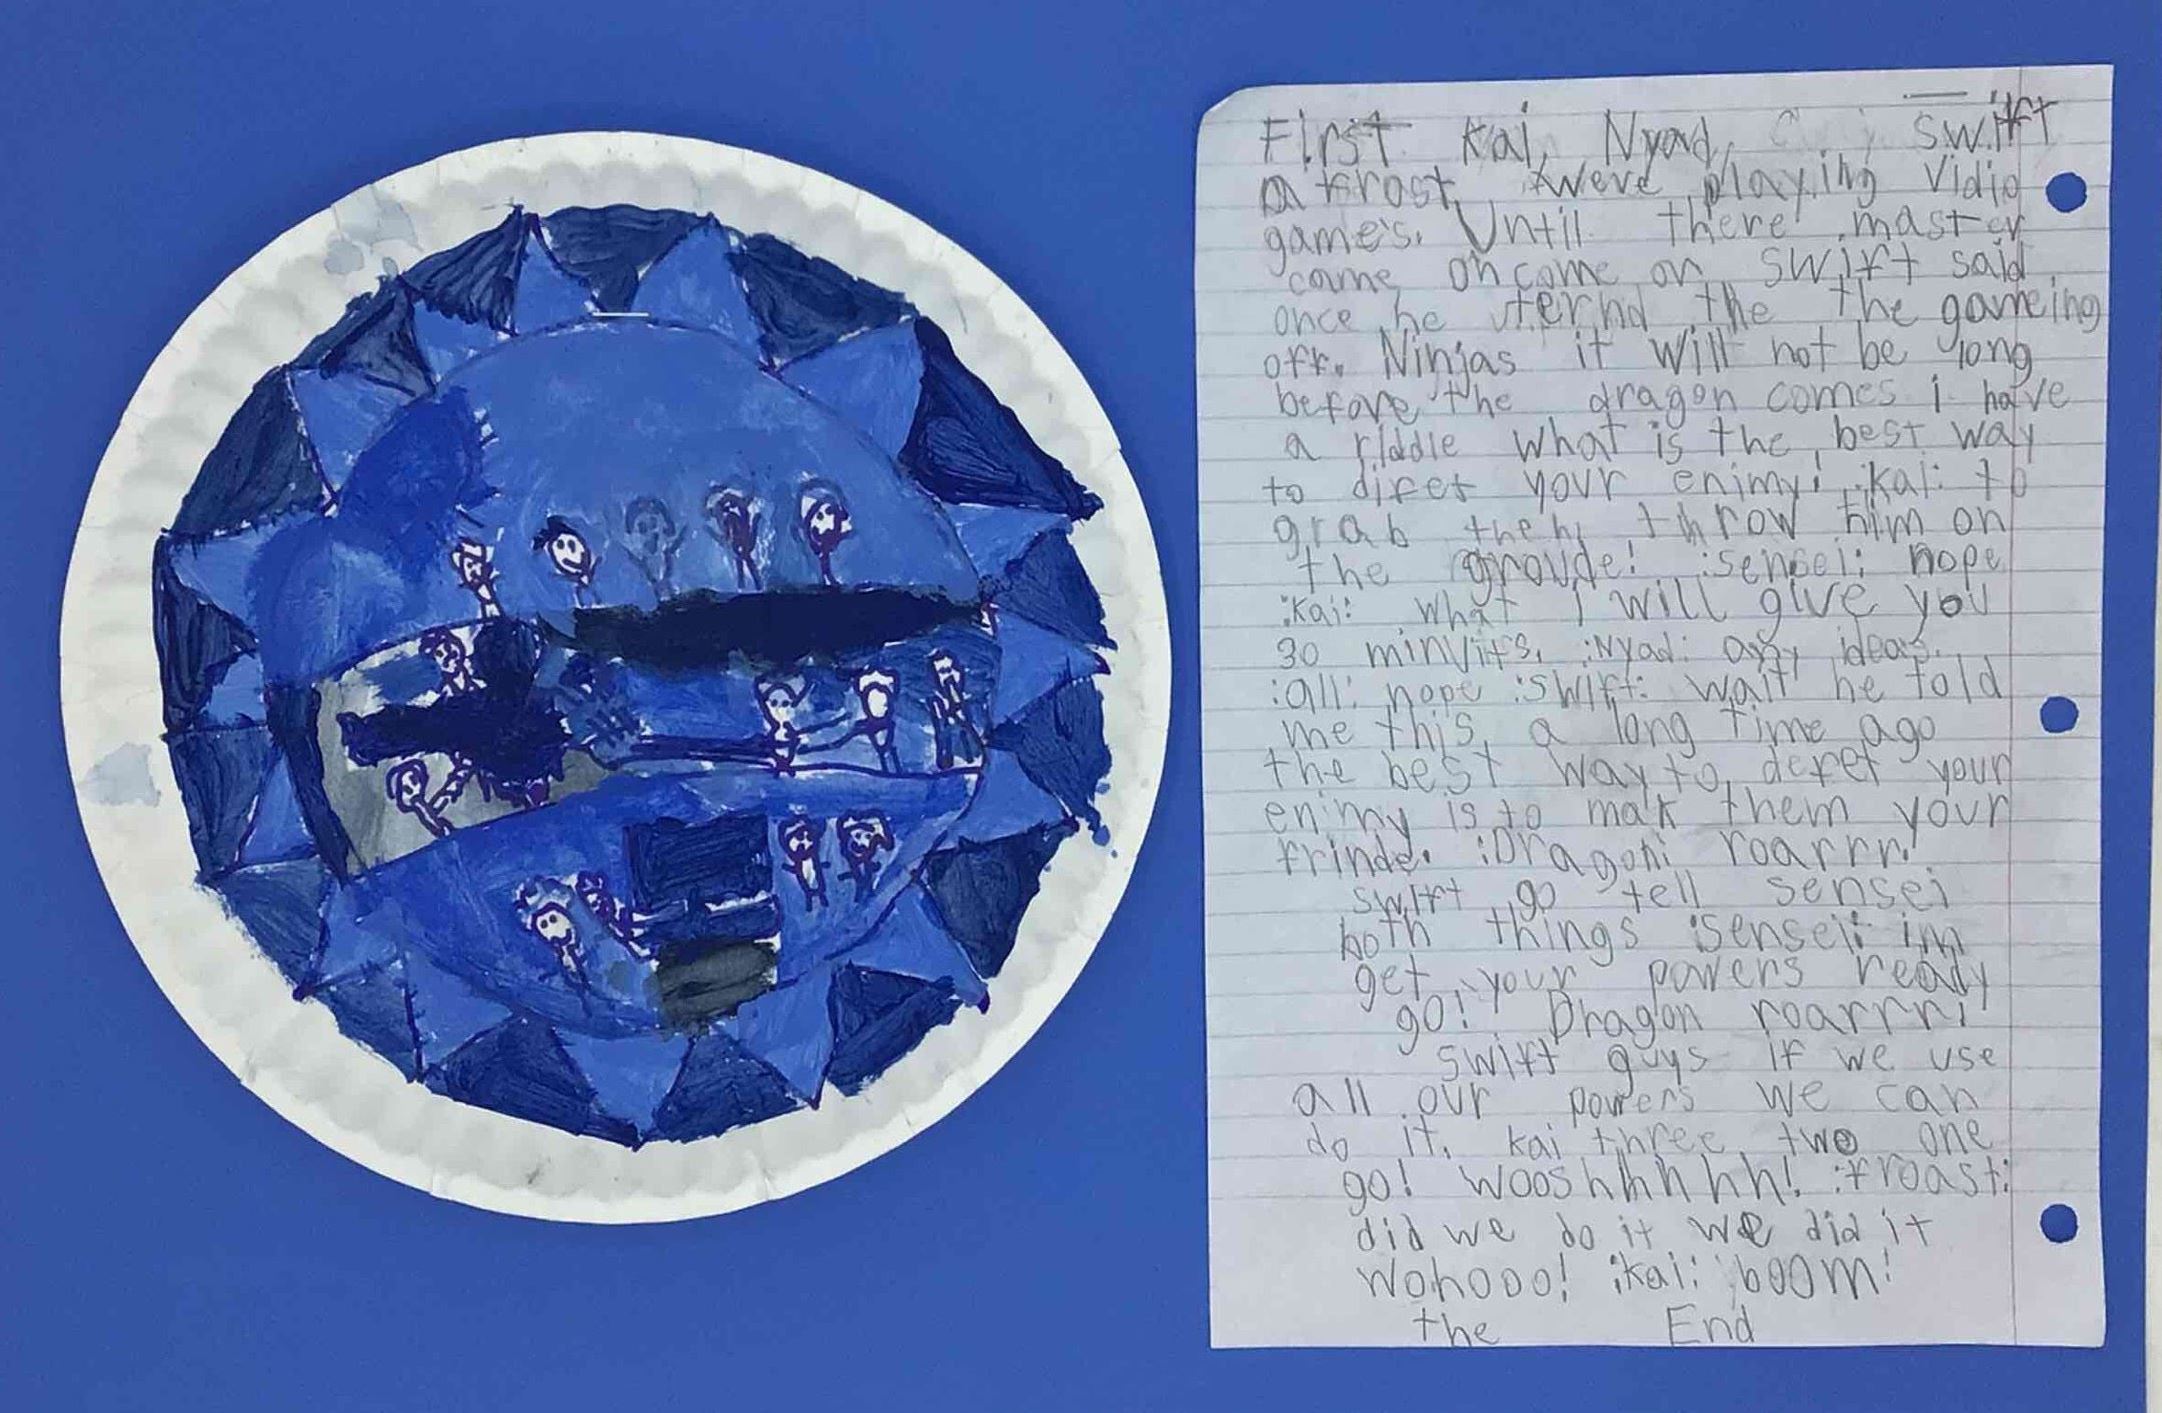 First Kai, Nyad, Swift
a frost, were playing vidio
games. Until there master
came oh come on swift said
once he ternd the the gameing
off. Ninjas it will not be long
before the dragon comes i have
a riddle what is the best way
to difet your enimy! :kai: to
grab them throw him on
the groude! :sensei: nope
:kai: what I will give you
30 minvits, :Nyad: any ideas.
:all: nope :swift: wait he told
me this a long time ago
the best way to defet your
enimy is to mak them your
frinde. :Dragon: roarrr!
swift go tell sensei
both things :sensei: im
get your powers ready
go! Dragon roarrrr!
swift guys if we use
all our powers we can
do it. kai three two one
go! wooshhhhhh! :froast:
did we do it we did it
wohooo! :kai: boom!
the End